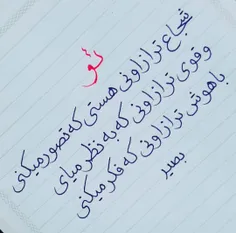 تو
شجاع تر ازاونی هستی که تصور میکنی
و قوی تر ازاونی که به نظر میای
با هوش تر ازاونی که فکر میکنی
بصیر